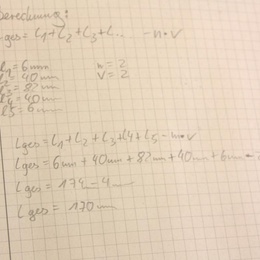 Berechnung:
Lges = l1 + l2 + l3 + L... - n•V
l1 = 6mm n = 2
l2 = 40mm V = 2
l3 = 82mm
l4 = 40mm
l5 = 6mm
Lges = L1 + L2 + L3 + L4 + L5 - n•V
Lges = 6mm + 40mm + 82mm + 40mm + 6mm -
Lges = 174 - 4mm
Lges = 170mm